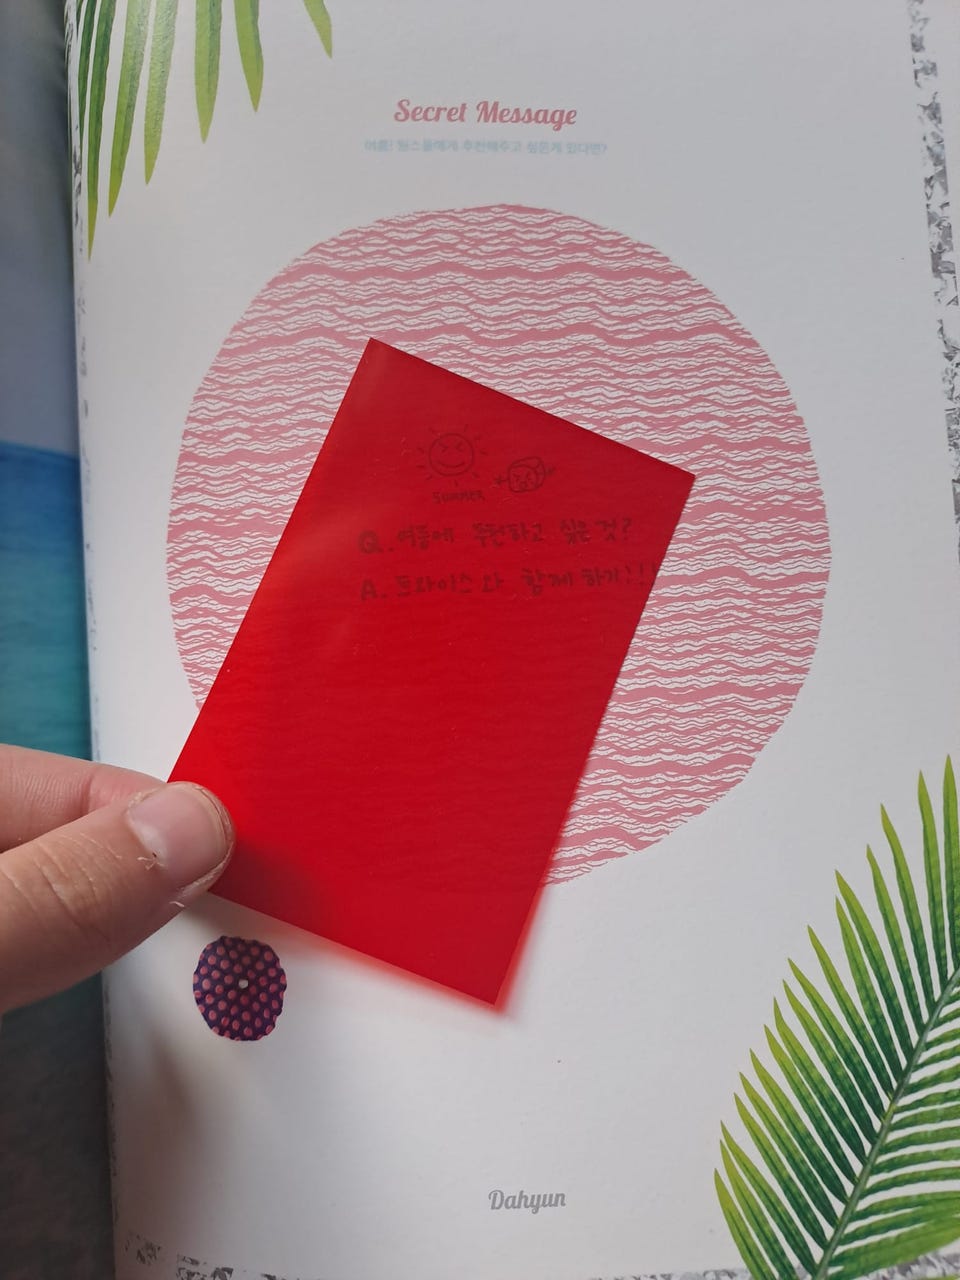 Secret Message
여름! 원스들에게 추천해주고 싶은게 있다면?
SUMMER
Q. 여름에 추천하고 싶은 것?
A. 트와이스와 함께 하기!!!
Dahyun